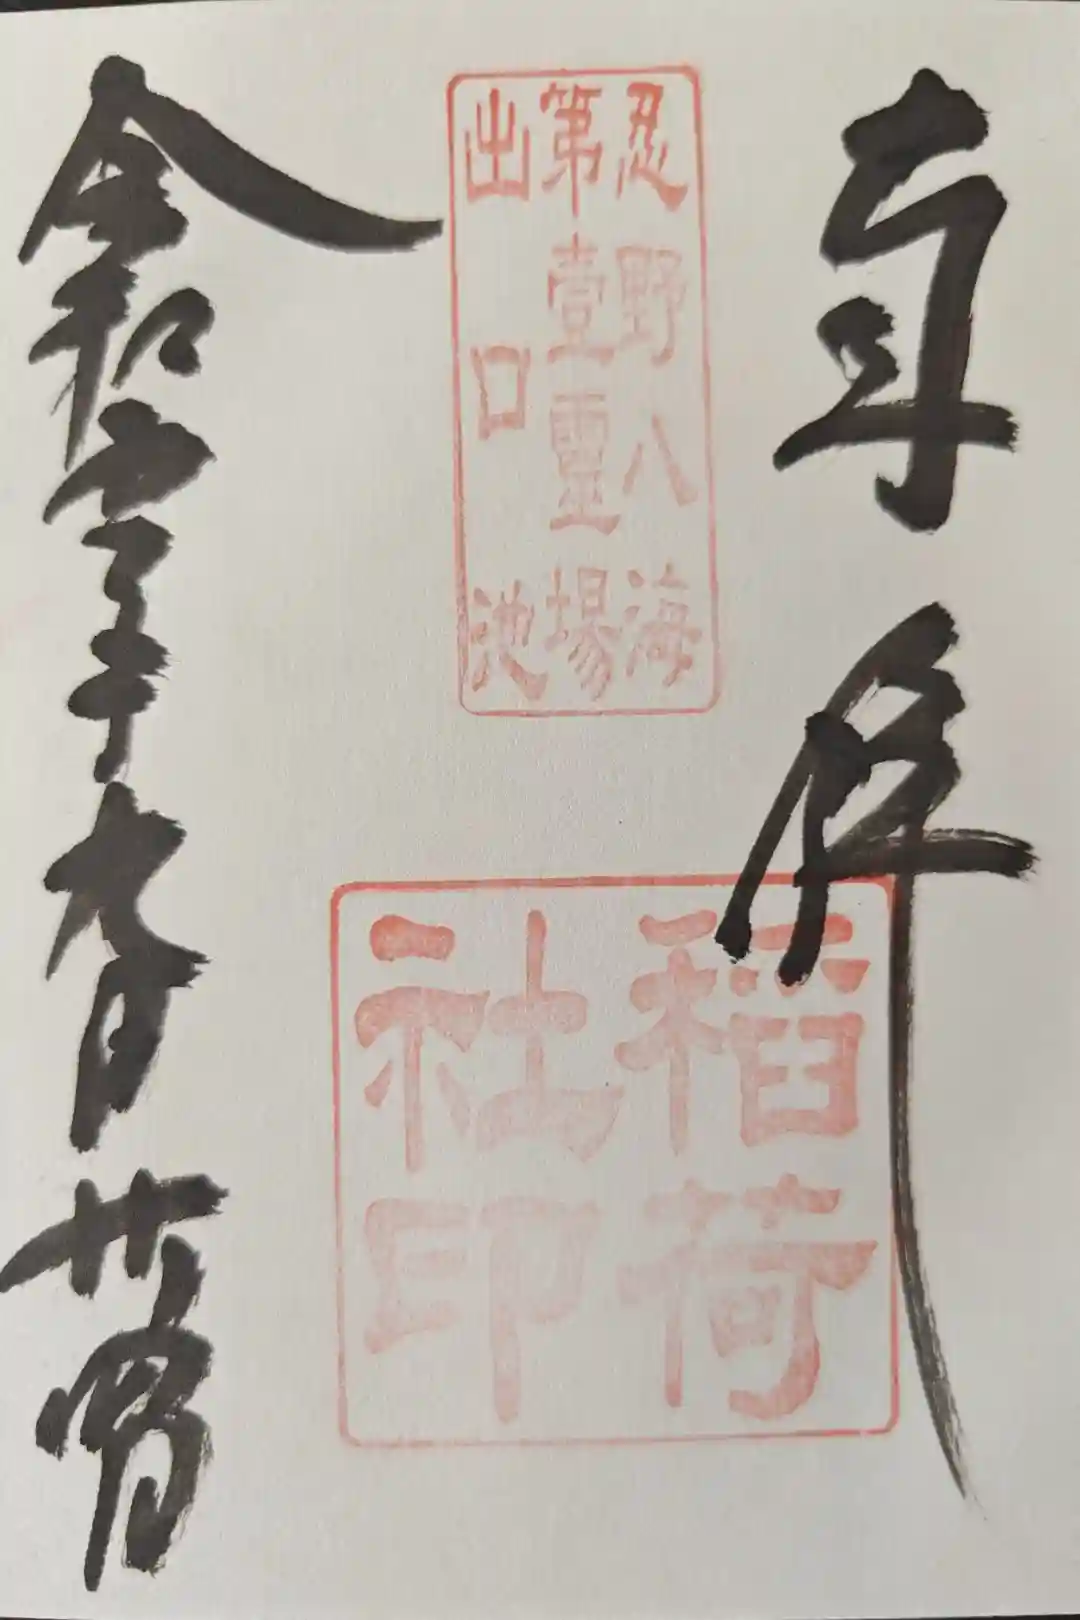 奉拝
忍野八海
第壹靈場
出口池
稲荷
社印
令和年九月廿四日